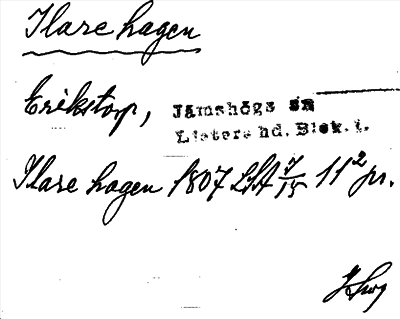 Ilare hagen
Erikstorp, Jämshögs sn
Listers hd. Blek. l.
Ilare hagen 1807 LSA 7/15 11² pr.